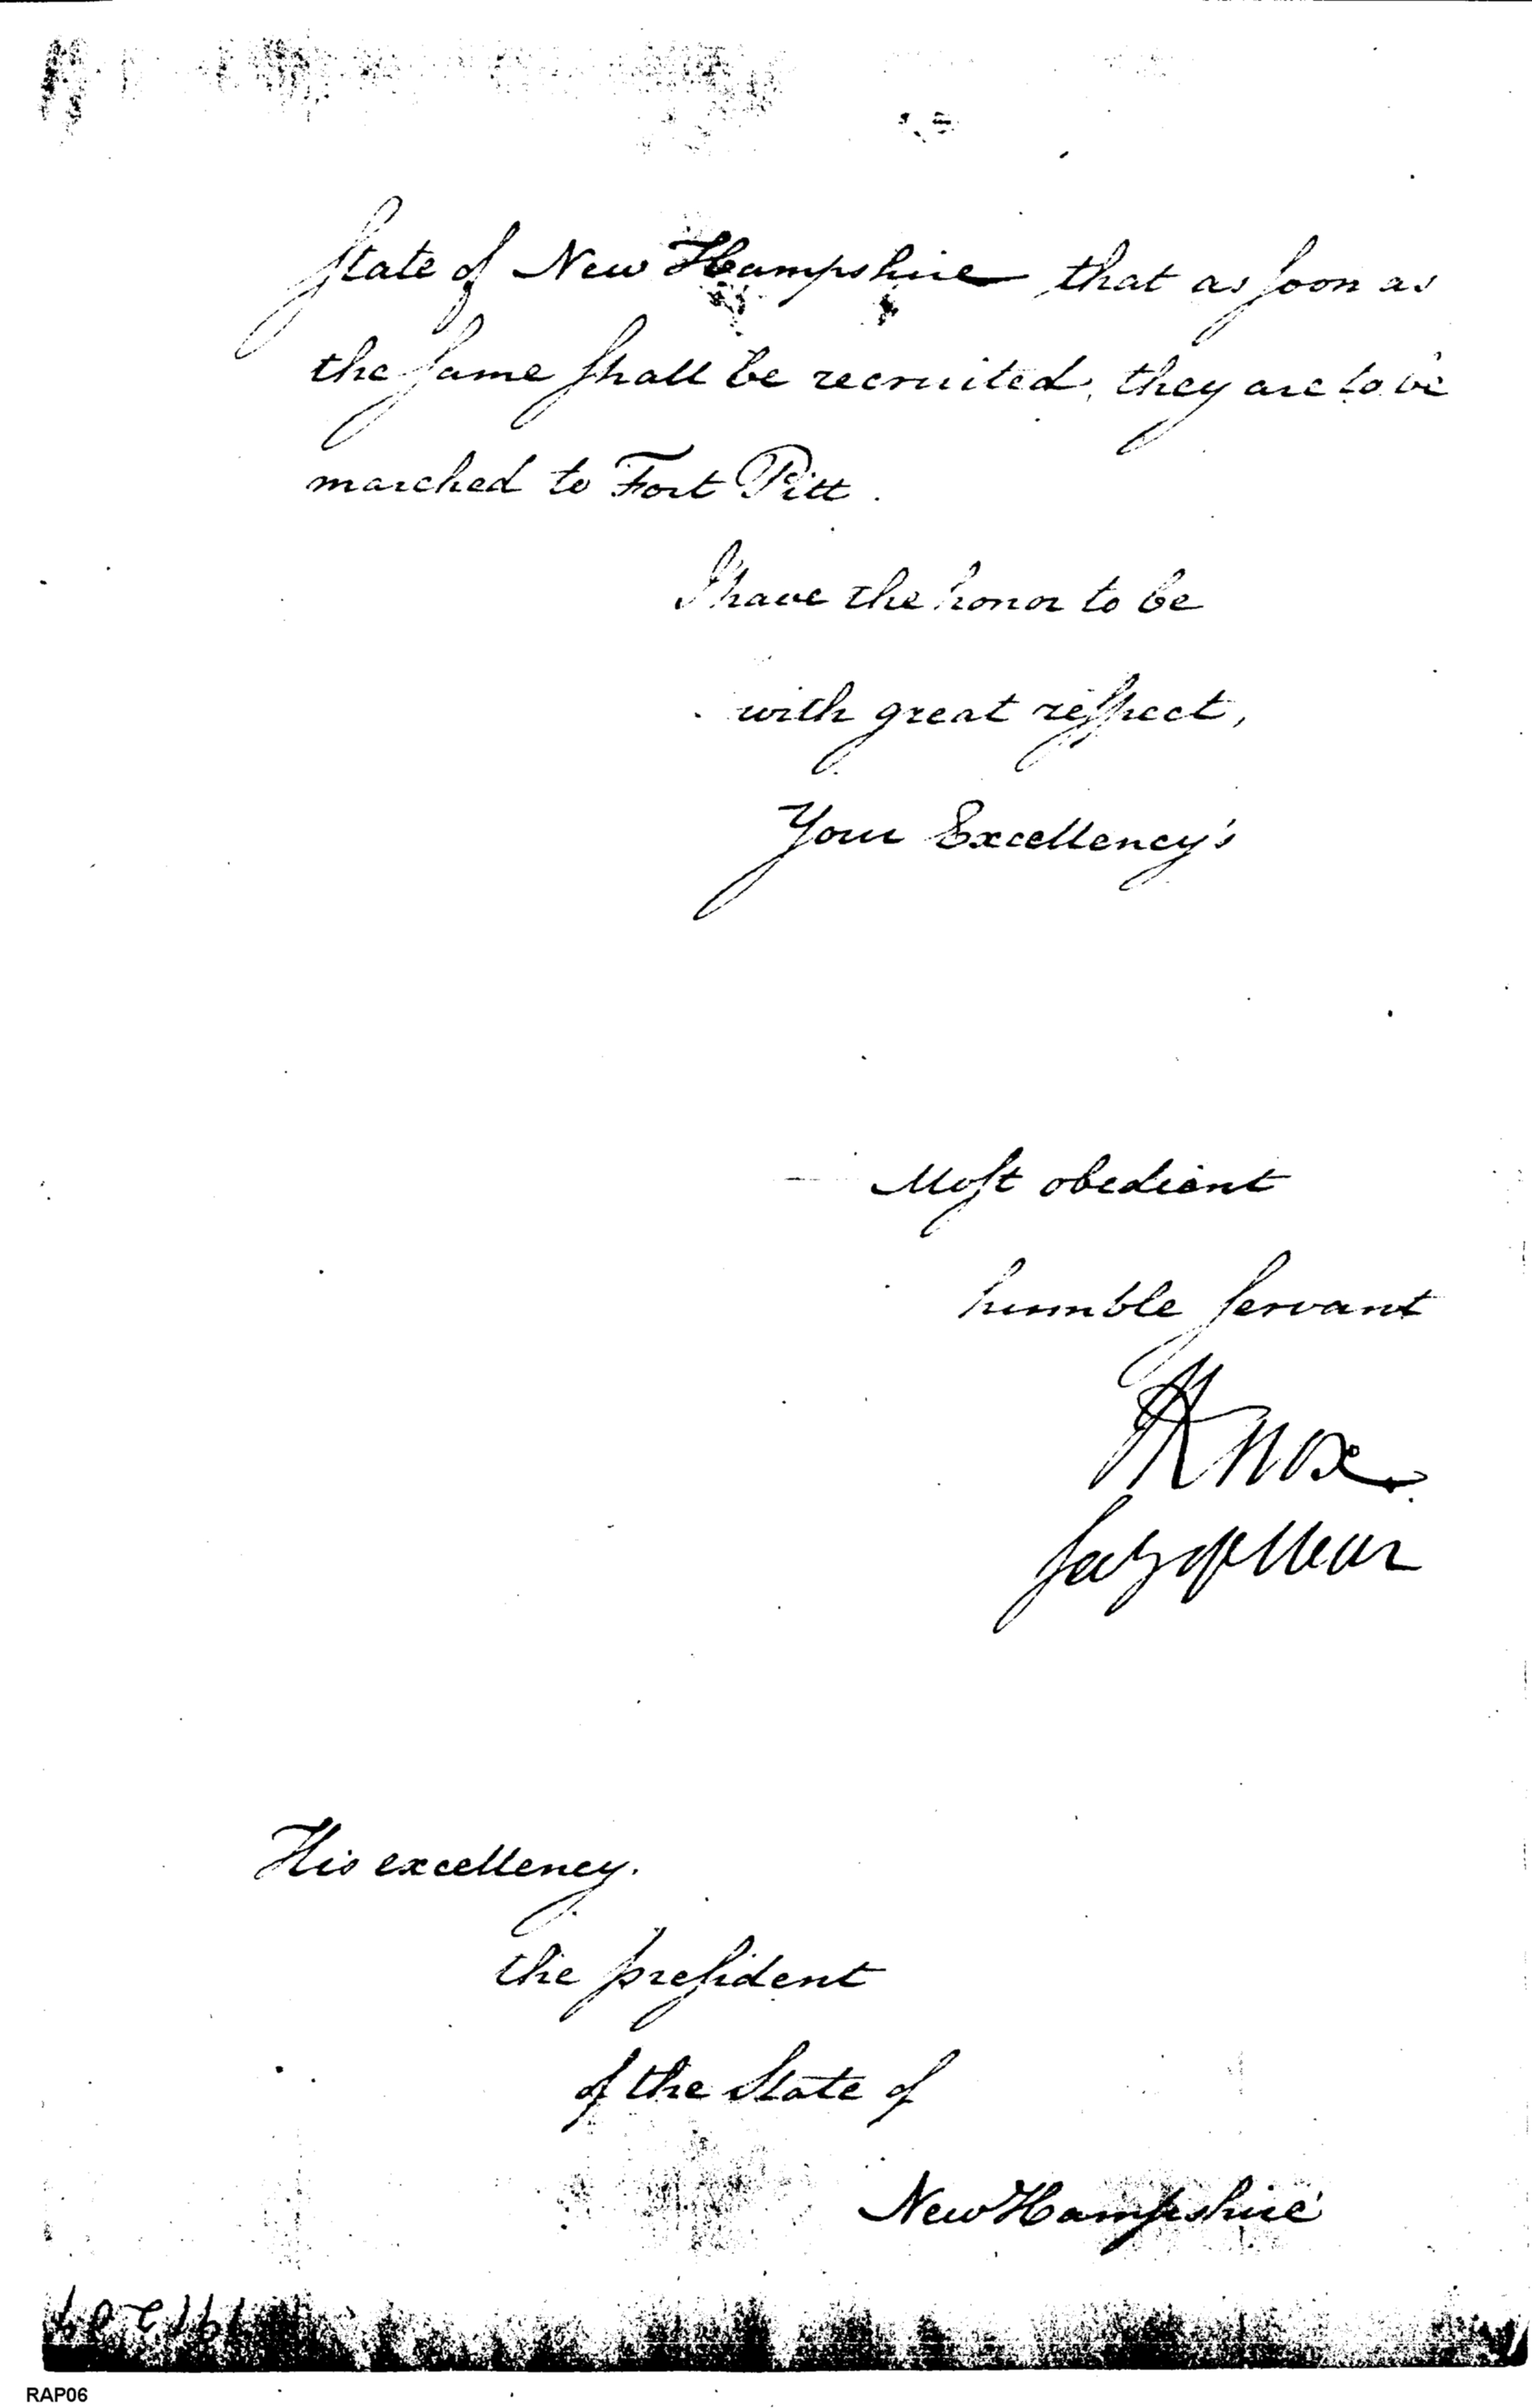 State of New Hampshire that as soon as
the same shall be recruited, they are to be
marched to Fort Pitt.
I have the honor to be
with great respect,
Your Excellency's
Most obedient
humble servant
HKnox
Secy of War
His excellency.
the president
of the State of
New Hampshire
RAP06